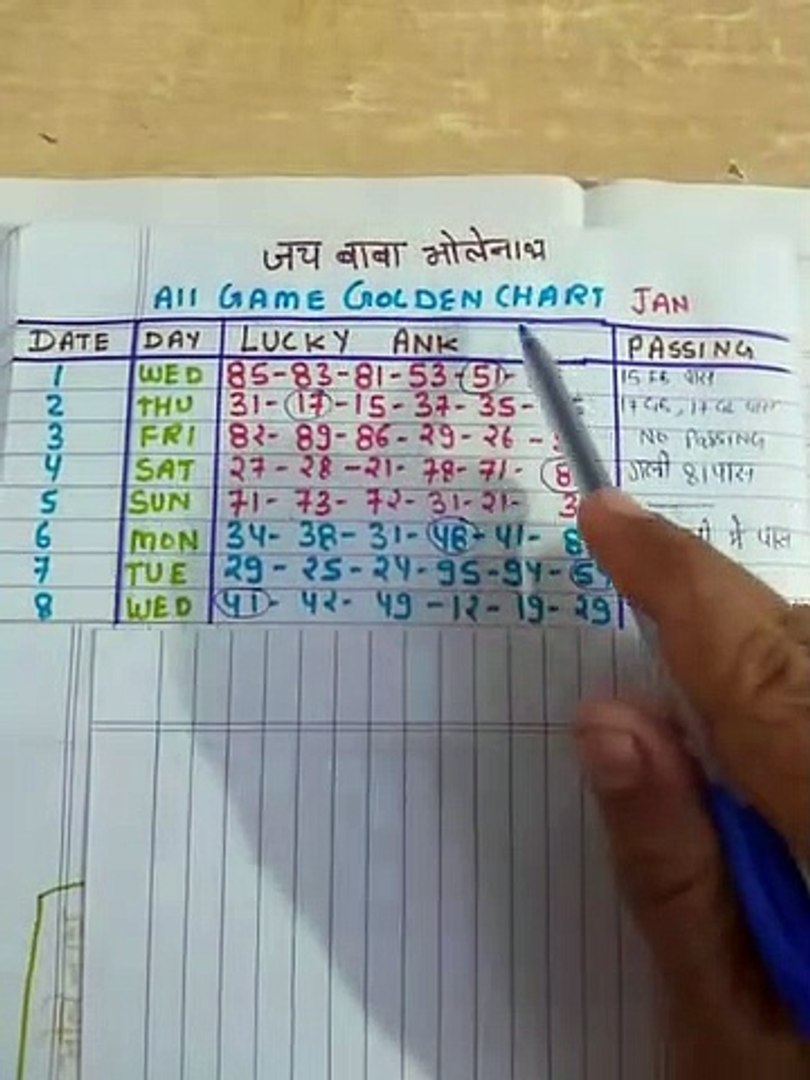 जय बाबा भोलेनाथ
All GAME GOLDEN CHART JAN
DATE DAY LUCKY ANK PASSING
1 WED 85-83-81-53-51- 15 FB पास
2 THU 31-17-15-37-35- 17 GB, 17 GL पास
3 FRI 82-89-86-29-26- NO PASSING
4 SAT 27-28-21-78-71- गली 81 पास
5 SUN 71-73-72-31-21-
6 MON 34-38-31-48-41- में पास
7 TUE 29-25-24-95-94-59
8 WED 41-42-49-12-19-29